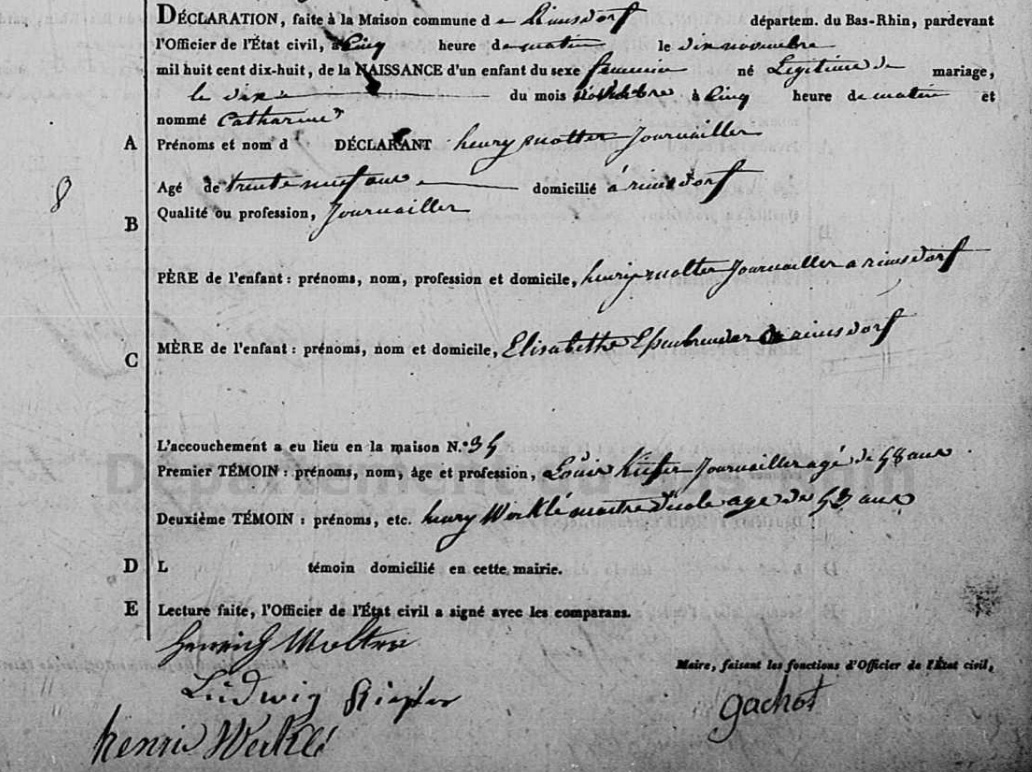 DÉCLARATION, faite à la Maison commune de Rimsdorf départem. du Bas-Rhin, pardevant
l'Officier de l'État civil, à cinq heure de matin le dix novembre
mil huit cent dix-huit, de la NAISSANCE d'un enfant du sexe feminin né Legitime de mariage,
le dix du mois novembre à cinq heure de matin et
nommé Catharine
A Prénoms et nom d DÉCLARANT henry molter Journailler
8 Agé de trente neuf ans domicilié à rimsdorf
B Qualité ou profession, Journailler
PÈRE de l'enfant : prénoms, nom, profession et domicile, henry molter Journailler a rimsdorf
C MÈRE de l'enfant : prénoms, nom et domicile, Elisabethe a rimsdorf
L'accouchement a eu lieu en la maison N.°
Premier TÉMOIN : prénoms, nom, âge et profession, Louis Kiefer Journailler agé de 48 ans
Deuxième TÉMOIN : prénoms, etc. henry Werklé maitre d'école age de ans
D L témoin domicilié en cette mairie.
E Lecture faite, l'Officier de l'État civil a signé avec les comparans.
Henrich Molter
Maire, faisant les fonctions d'Officier de l'État civil,
Ludwig Kiefer
gachot
henri Werklé